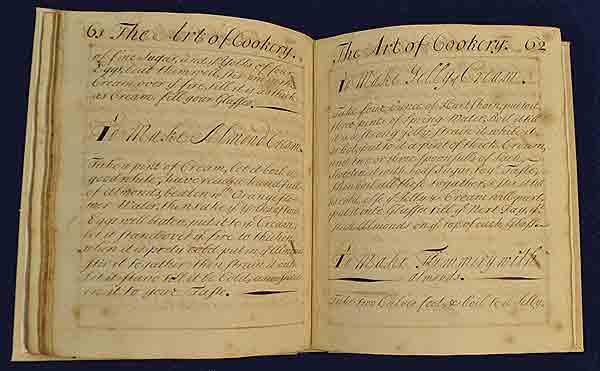 61 The Art of Cookery.
of fine Sugar, and ye Yolks of four
Eggs, beat them well, stir 'em in ye
Cream over ye fire, till it is as thick
as Cream fill your Glasses.
To Make Almond Cream.
Take a pint of Cream, let it boil
good while, have ready a handfull
of Almonds, beat em with Orange flo-
wer Water, then take ye
Eggs well beaten, put it to ye Cream,
let it stand over ye fire to thicken,
when it is pretty cool put in ye Almonds
stir it together then strain it out,
let it stand till it be Cold,
to your Taste.
The Art of Cookery. 62
To Make Jelly Cream.
Take four Ounces of Hart's horn, put it in
three pints of Spring Water, boil it till
it is a strong jelly, strain it while it
is hot, put to it a pint of thick Cream,
and two or three spoon fulls of Sack,
sweeten it with loaf Sugar, to ye Taste,
then put all these together, & stir it till
ye Jelly & Cream will part,
put it into Glasses till ye Next day, stick
Almonds on ye top of each Glass.
To Make Flummery with
Almonds.
Take two Calves feet, & boil to a Jelly.